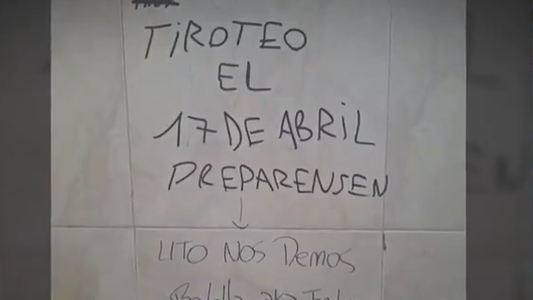 TiROTEO
EL
17 DE ABRiL
PREPARENSEN
LITO NOS Demos